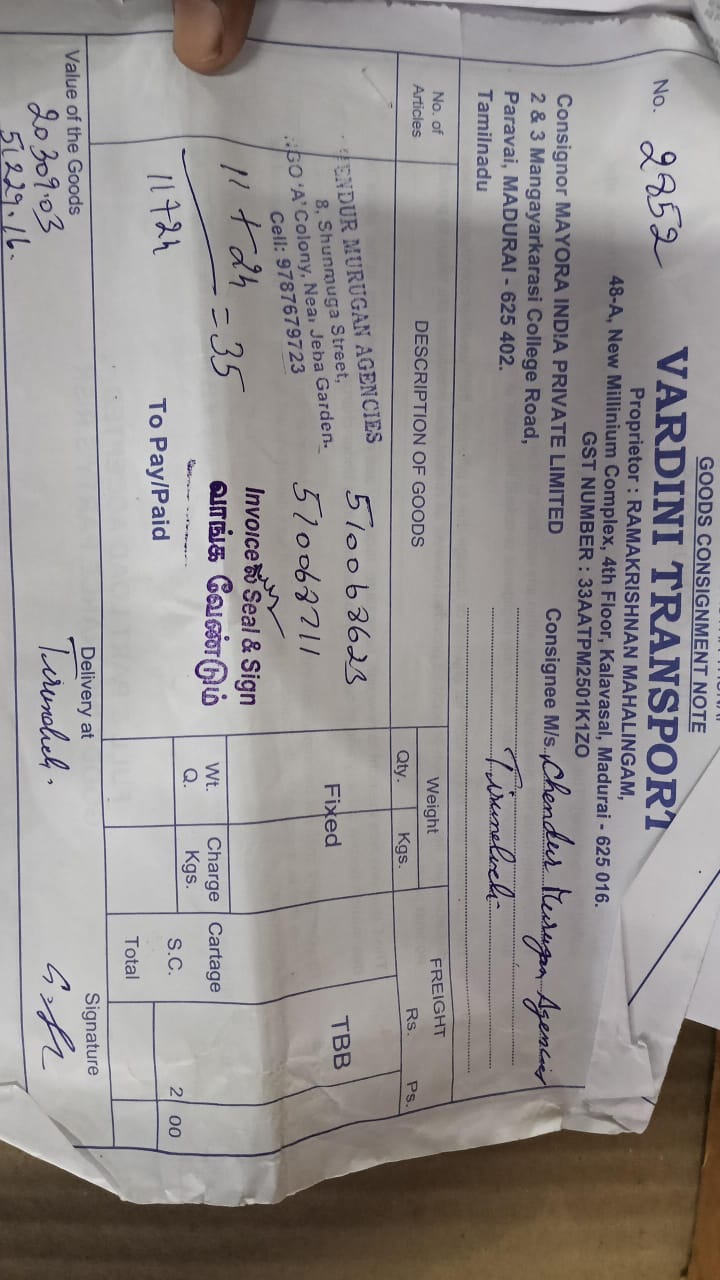 GOODS CONSIGNMENT NOTE
No. 2852
VARDINI TRANSPORT
Proprietor : RAMAKRISHNAN MAHALINGAM,
48-A, New Millinium Complex, 4th Floor, Kalavasal, Madurai - 625 016.
GST NUMBER : 33AATPM2501K1ZO
Consignor MAYORA INDIA PRIVATE LIMITED
2 & 3 Mangayarkarasi College Road,
Paravai, MADURAI - 625 402.
Tamilnadu
Consignee M/s. Chendur Murugan Agencies
Tirunelveli
No. of Articles
DESCRIPTION OF GOODS
Weight
Qty. Kgs.
FREIGHT
Rs. Ps.
ENDUR MURUGAN AGENCIES
8, Shunmuga Street,
NGO 'A' Colony, Near Jeba Garden.
Cell: 9787679723
510063623
510062711
Fixed
TBB
11 + 24 = 35
Invoice ல் Seal & Sign
வாங்க வேண்டும்
11724
To Pay/Paid
Wt. Q.
Charge Kgs.
Cartage
S.C. 2 00
Total
Value of the Goods
20309.03
51229.16.
Delivery at
Signature